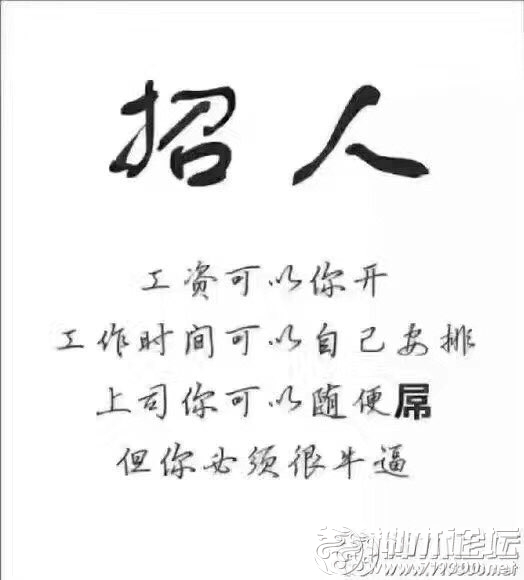 招人
工资可以你开
工作时间可以自己安排
上司你可以随便屌
但你必须很牛逼
神木论坛